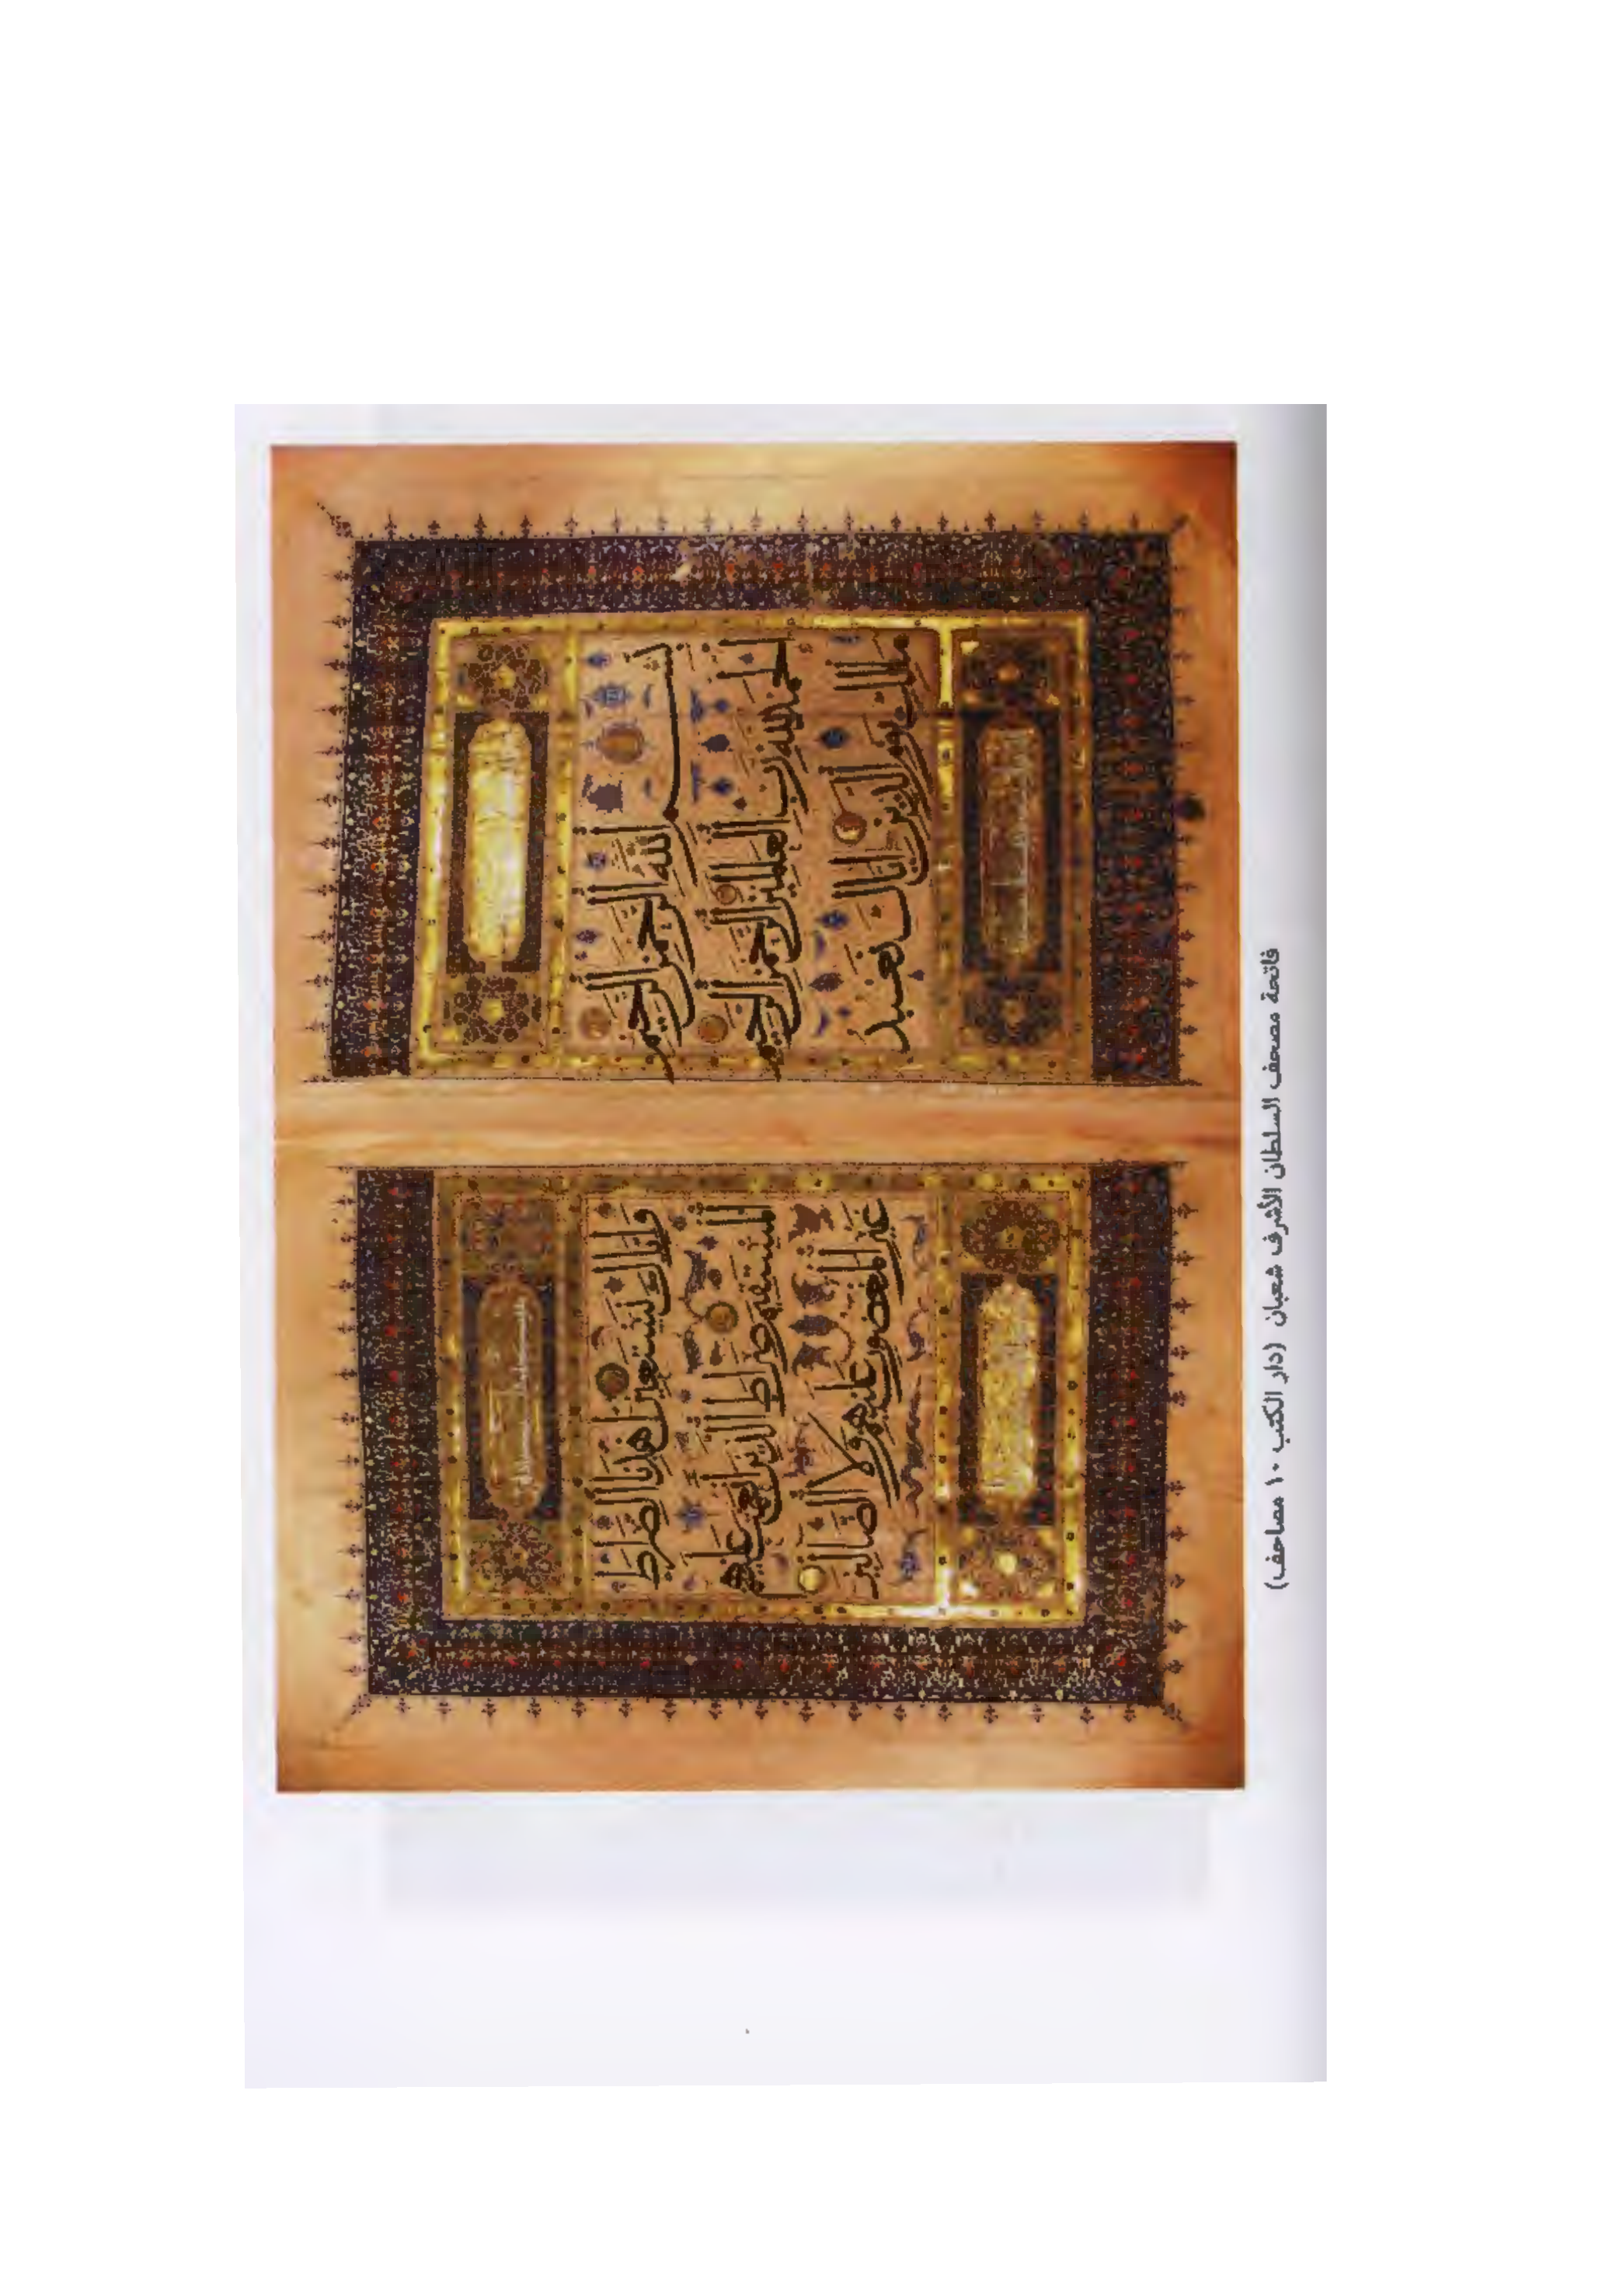 بسم الله الرحمن الرحيم
الحمد لله رب العلمين الرحمن الرحيم
ملك يوم الدين اياك نعبد
واياك نستعين اهدنا الصرط
المستقيم صراط الذين انعمت عليهم
غير المغضوب عليهم ولا الضالين
فاتحة مصحف السلطان الأشرف شعبان (دار الكتب ١٠ مصاحف)